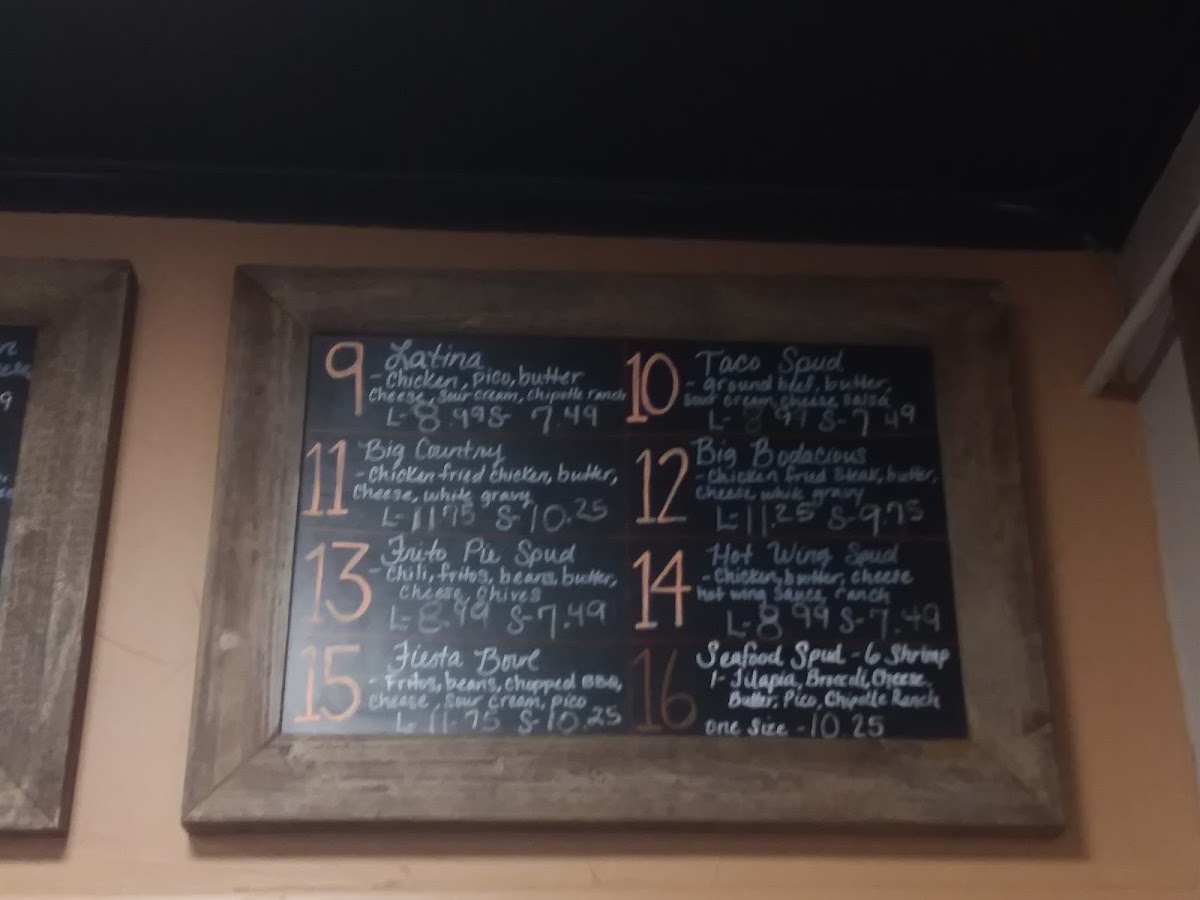 9 Latina
- Chicken, pico, butter
Cheese, Sour Cream, Chipotle ranch
L- 8.99 S- 7.49
10 Taco Spud
- ground beef, butter,
Sour cream, cheese, Salsa
L- 8 99 S- 7 49
11 Big Country
- Chicken fried chicken, butter,
Cheese, white gravy
L- 11 75 S- 10.25
12 Big Bodacious
- Chicken fried Steak, butter,
Cheese white gravy
L- 11.25 S- 9.75
13 Frito Pie Spud
- Chili, fritos, beans, butter,
Cheese, Chives
L- 8.99 S- 7.49
14 Hot Wing Spud
- Chicken, butter, cheese
hot wing Sauce, ranch
L- 8 99 S- 7.49
15 Fiesta Bowl
- Fritos, beans, chopped BBQ,
cheese, sour cream, pico
L- 11.75 S- 10.25
16 Seafood Spud - 6 Shrimp
1- Tilapia, Broccoli, Cheese,
Butter, Pico, Chipotle Ranch
one Size - 10.25